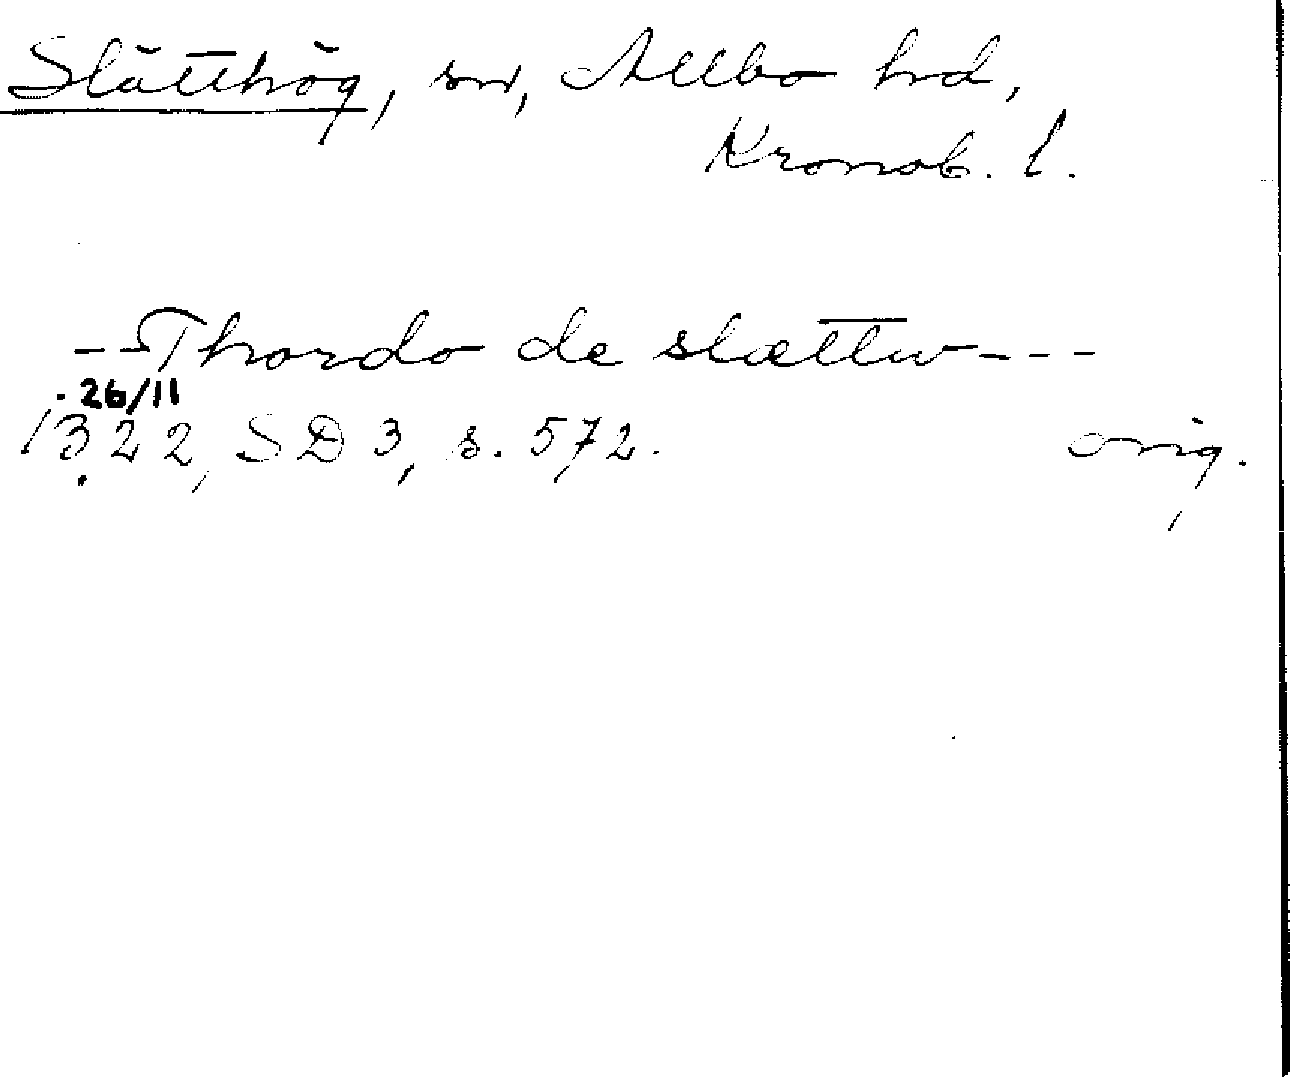 Slätthög, sn, Allbo hd,
Kronob. l.
--Thordo de slættw---
26/11
1322, SD 3, s. 572. orig.